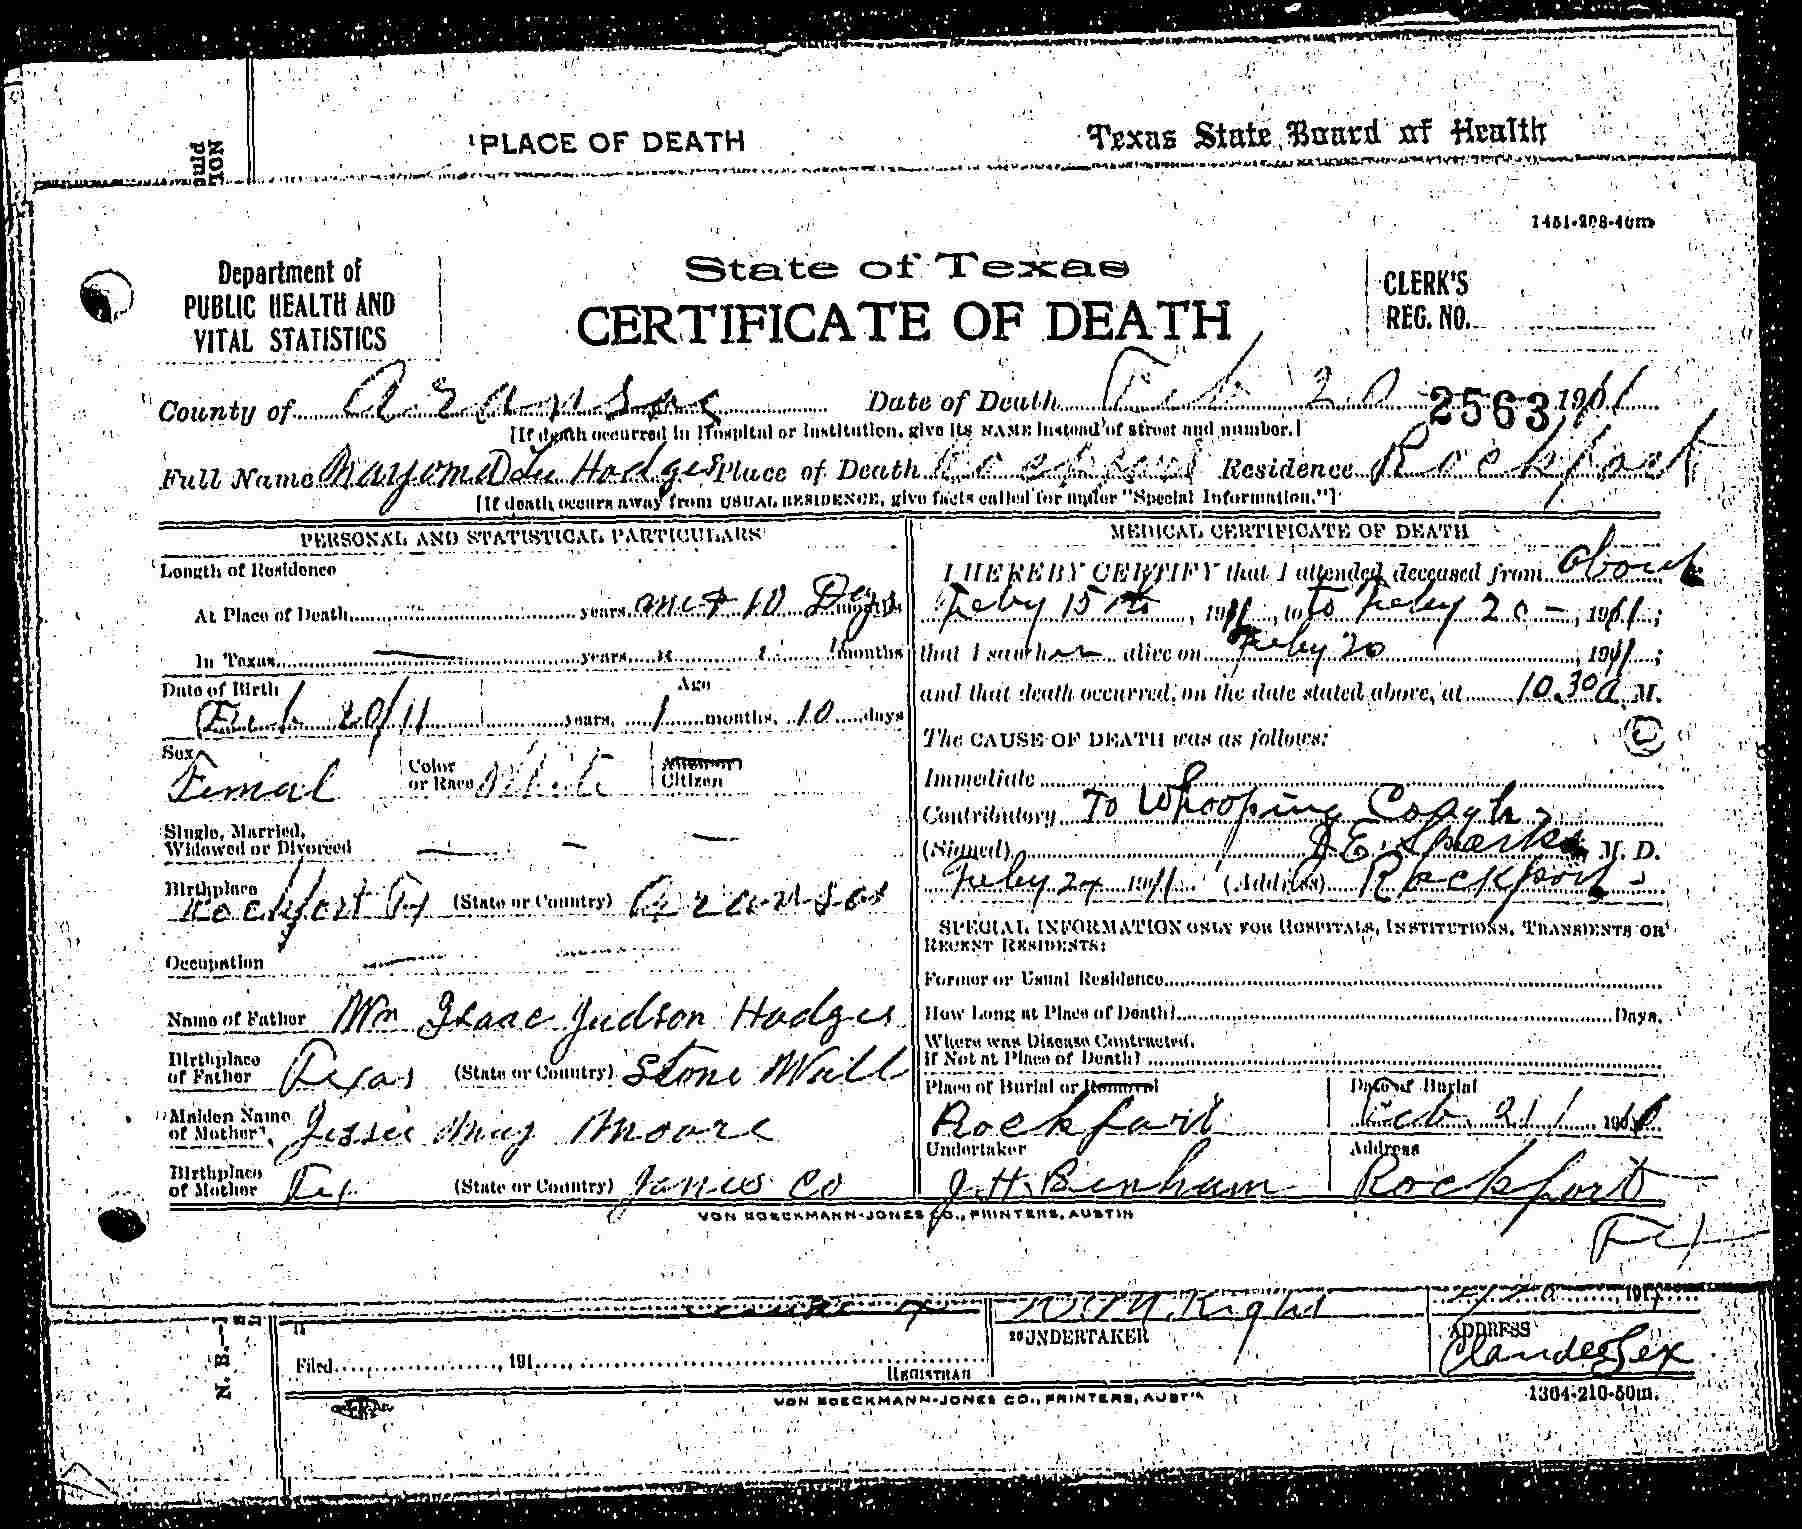 PLACE OF DEATH
Texas State Board of Health
1451-208-40m
Department of
PUBLIC HEALTH AND
VITAL STATISTICS
State of Texas
CERTIFICATE OF DEATH
CLERK'S
REG. NO.
County of Aransas Date of Death Feb 20 2563 1911
[If death occurred in Hospital or Institution, give its NAME instead of street and number.]
Full Name Hodges Place of Death Rockport Residence Rockport
[If death occurs away from USUAL RESIDENCE, give facts called for under "Special Information."]
PERSONAL AND STATISTICAL PARTICULARS
Length of Residence
At Place of Death years 10 Days months
In Texas years months
Date of Birth Age
Feb 20/11 years, 1 months, 10 days
Sex Femal Color or Race White Citizen
Single, Married,
Widowed or Divorced
Birthplace Rockport Tx (State or Country) Aransas
Occupation
Name of Father Wm Isaac Judson Hodges
Birthplace of Father Texas (State or Country) Stone Wall
Maiden Name of Mother Jessie May Moore
Birthplace of Mother Tex (State or Country) Jones Co
MEDICAL CERTIFICATE OF DEATH
I HEREBY CERTIFY that I attended deceased from about
Feby 15 1911, to to Feby 20 - 1911;
that I saw her alive on Feby 20, 1911;
and that death occurred, on the date stated above, at 10.30 a M.
The CAUSE OF DEATH was as follows:
Immediate
Contributory To Whooping Cough
(Signed) Sparks M. D.
Feby 24 1911 (Address) Rockport
SPECIAL INFORMATION ONLY FOR HOSPITALS, INSTITUTIONS, TRANSIENTS OR
RECENT RESIDENTS:
Former or Usual Residence
How Long at Place of Death? Days.
Where was Disease Contracted,
If Not at Place of Death?
Place of Burial or Removal Date of Burial
Rockport Feb 21 1911
Undertaker Address
J. H. Benham Rockport
Tex
VON BOECKMANN-JONES CO., PRINTERS, AUSTIN
N. B.—
Filed 191
REGISTRAR
20 UNDERTAKER
191
ADDRESS
Claude Tex
VON BOECKMANN-JONES CO., PRINTERS, AUSTIN
1364-210-50m.